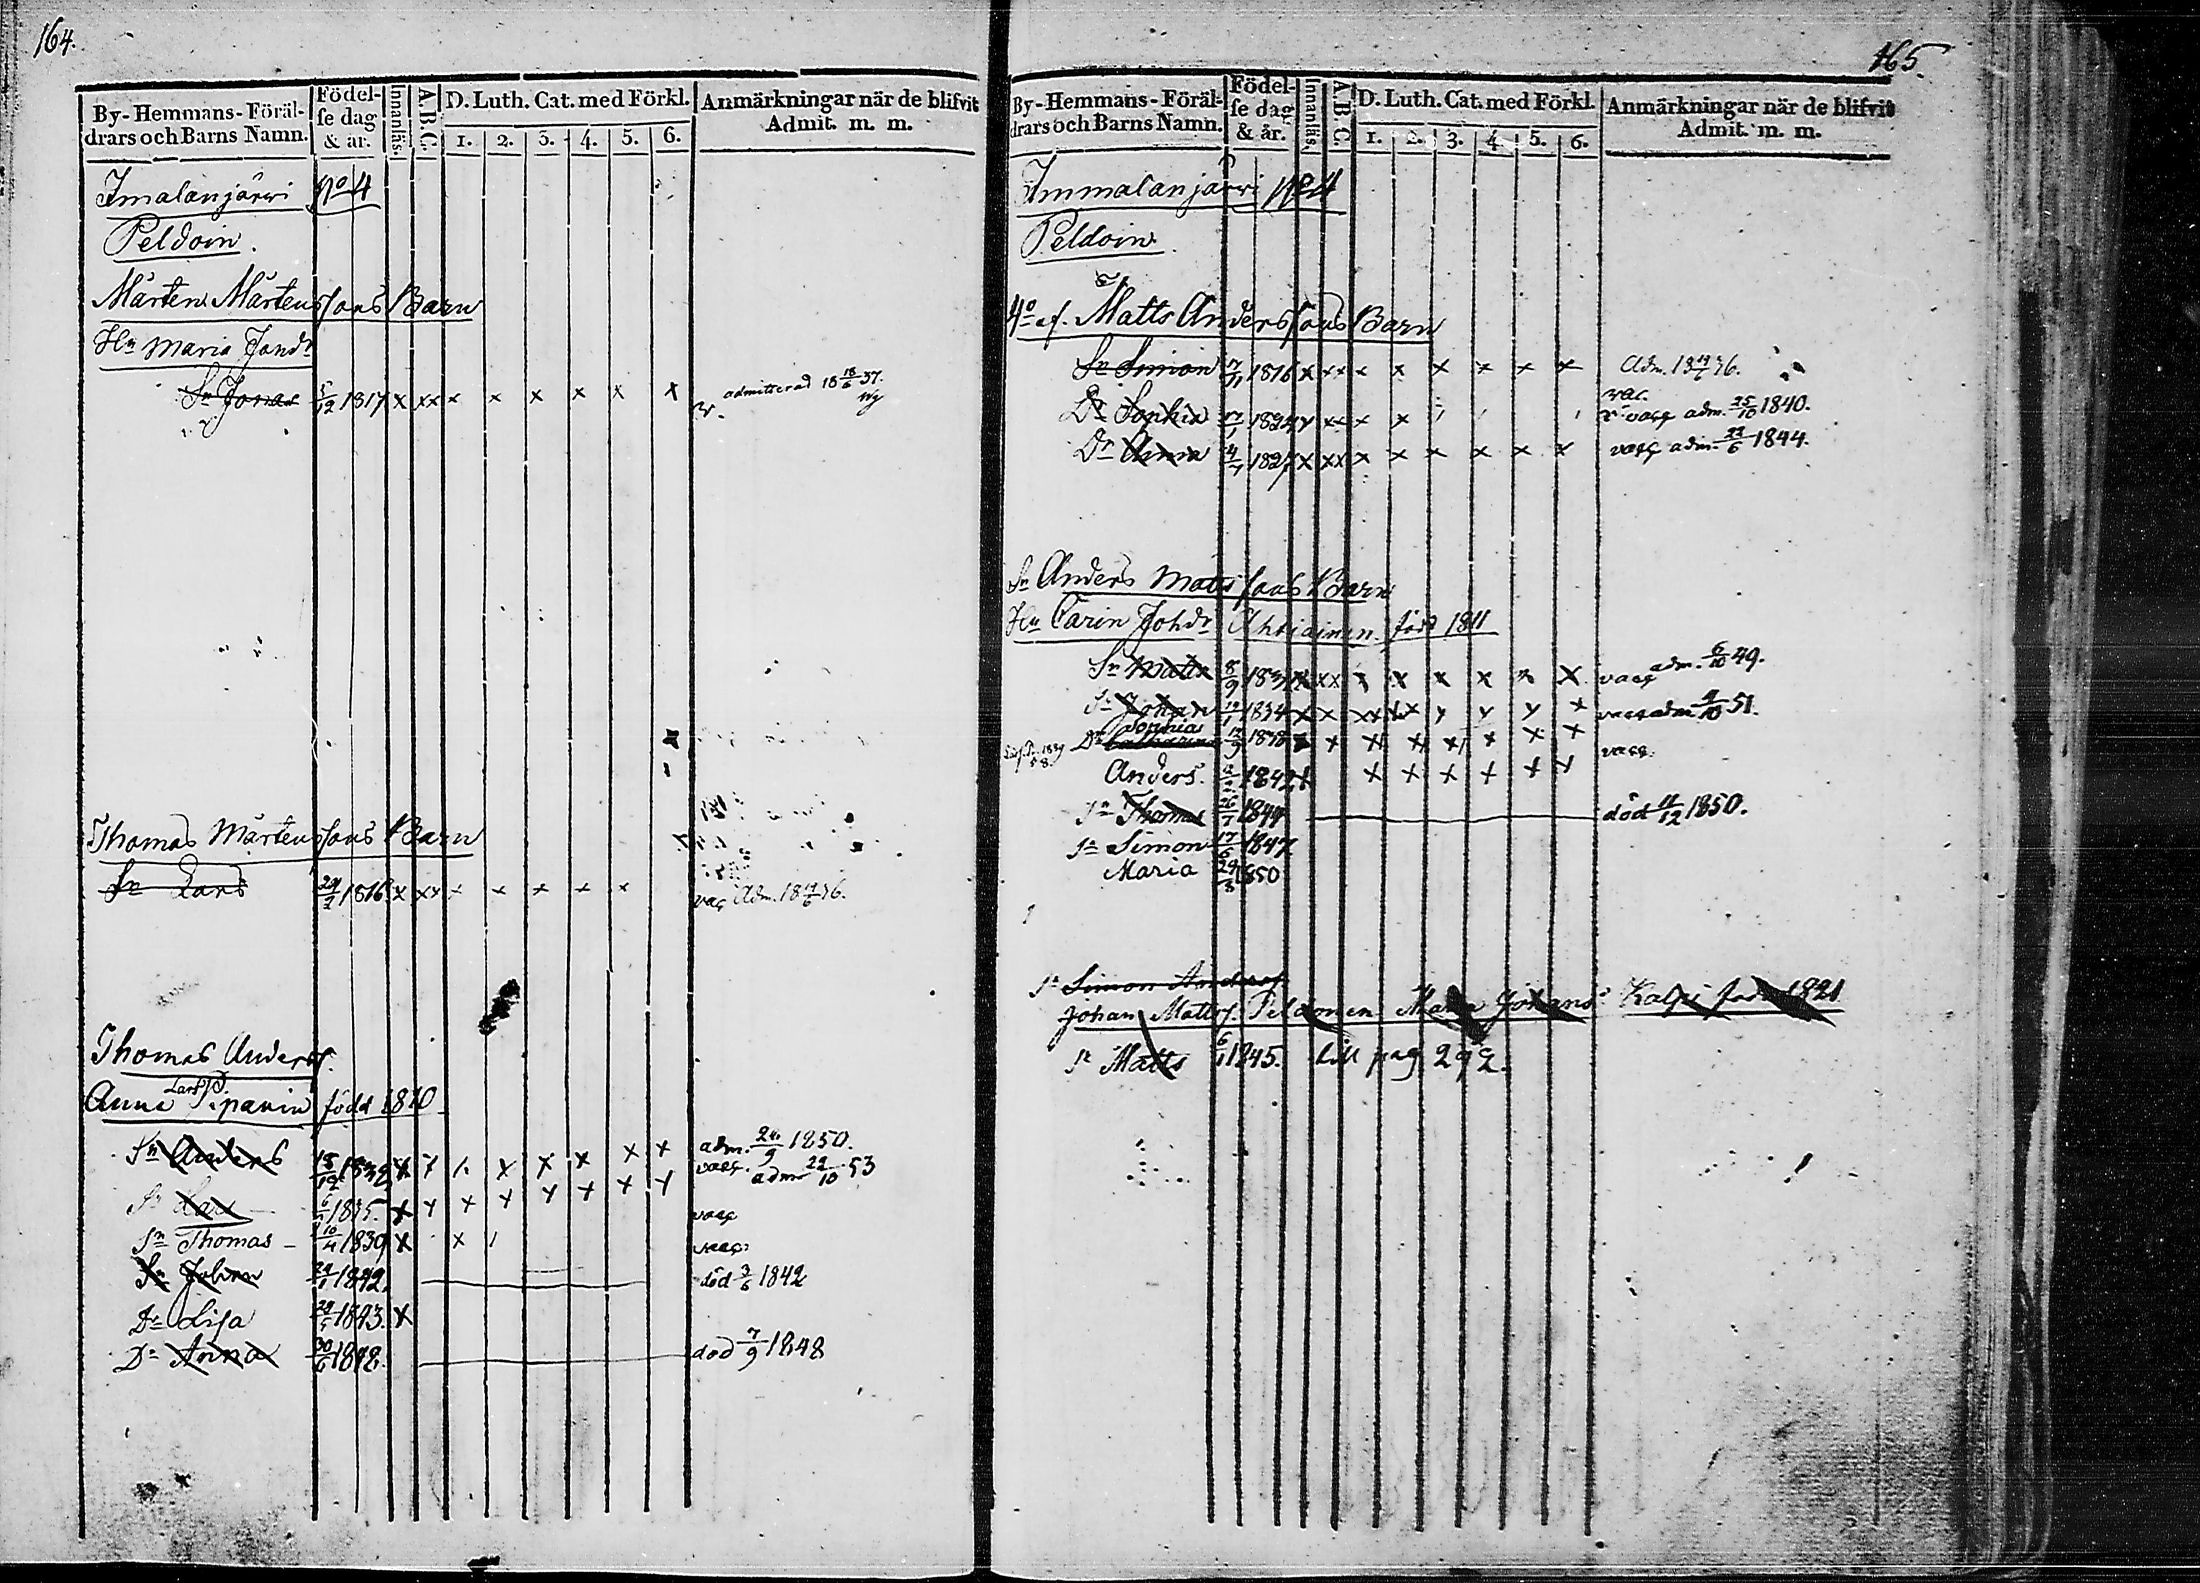 164.
By-Hemmans-Föräl-
drars och Barns Namn.
Födel-
se dag
& år.
Innanläs.
A.B.C.
D. Luth. Cat. med Förkl.
1. 2. 3. 4. 5. 6.
Anmärkningar när de blifvit
Admit. m. m.
Imalanjärwi No 4
Peldoin.
Mårten Mårtenssons Barn
Hu Maria Jonsdr
Sn Jonas 5/12 1817 x xx x x x x x x admitterad 18 18/6 37.
Thomas Mårtenssons Barn
Sn Lars 29/2 1816 x xx x x x x x vac Adm. 18 /6 36.
Thomas Anderss.
Lars D.
Anna Piparin född 1810
Sn Anders 18/12 1832 x x x x x x x adm. 26/9 1850.
vacc. adm 22/10 53
Sn Lars 1835. x x x x x x x x vacc
Sn Thomas 10/4 1839 x x vacc
Sn Johan 1842 död 3/6 1842
Dr Lisa 1843. x
Dr Anna 30/6 1848. död 7/9 1848
165.
By-Hemmans-Föräl-
drars och Barns Namn.
Födel-
se dag
& år.
Innanläs.
A.B.C.
D. Luth. Cat. med Förkl.
1. 2. 3. 4. 5. 6.
Anmärkningar när de blifvit
Admit. m. m.
Immalanjärwi No 4
Peldoin
4o Matts Anderssons Barn
Sn Simon 17/11 1816 x xx x x x x x x Adm. 18 36.
vac.
Dr Sophia 1824 x xx x x vacc adm. 25/10 1840.
Dr Anna 1827 x xx x x x x x x vacc adm. 23/6 1844.
Sn Anders Mattssons Barn
Hu Carin Johdr Ahtiainen. född 1811
Sn Matts 8/9 183 x xx x x x x x x vacc adm. 6/10 49.
Sn Johan 1834 x x xx x x y y y x vacc adm 4/10 51.
Sophia
Dr Catharina 1838 x x x x x x x x vacc.
Anders. 1842 x x x x x x x
Sn Thomas 26/7 1844 död 11/12 1850.
Sn Simon 17/6 1847
Maria 29/3 1850
Sn Simon Anderss
Johan Mattss. Peldonen Maria Johansd Kalpi född 1821
Sn Matts 6/1 1845. till pag 292.